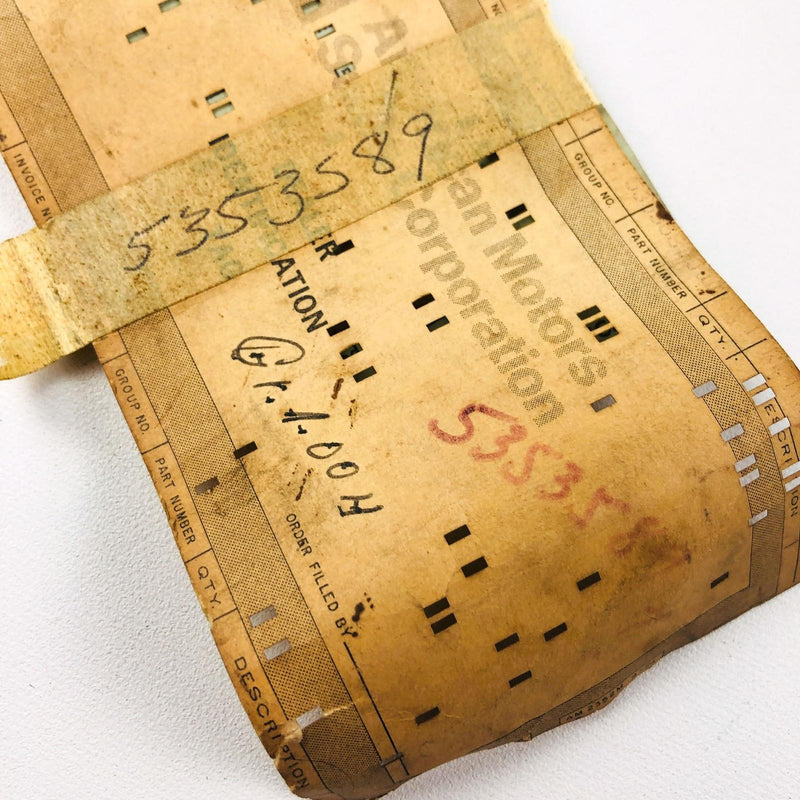 INVOICE
5353589
ER
ATION
an Motors
orporation
GROUP NO.
PART NUMBER
QTY.
G1.1.00H
5353589
GROUP NO.
PART NUMBER
QTY.
DESCRIPTION
ORDER FILLED BY